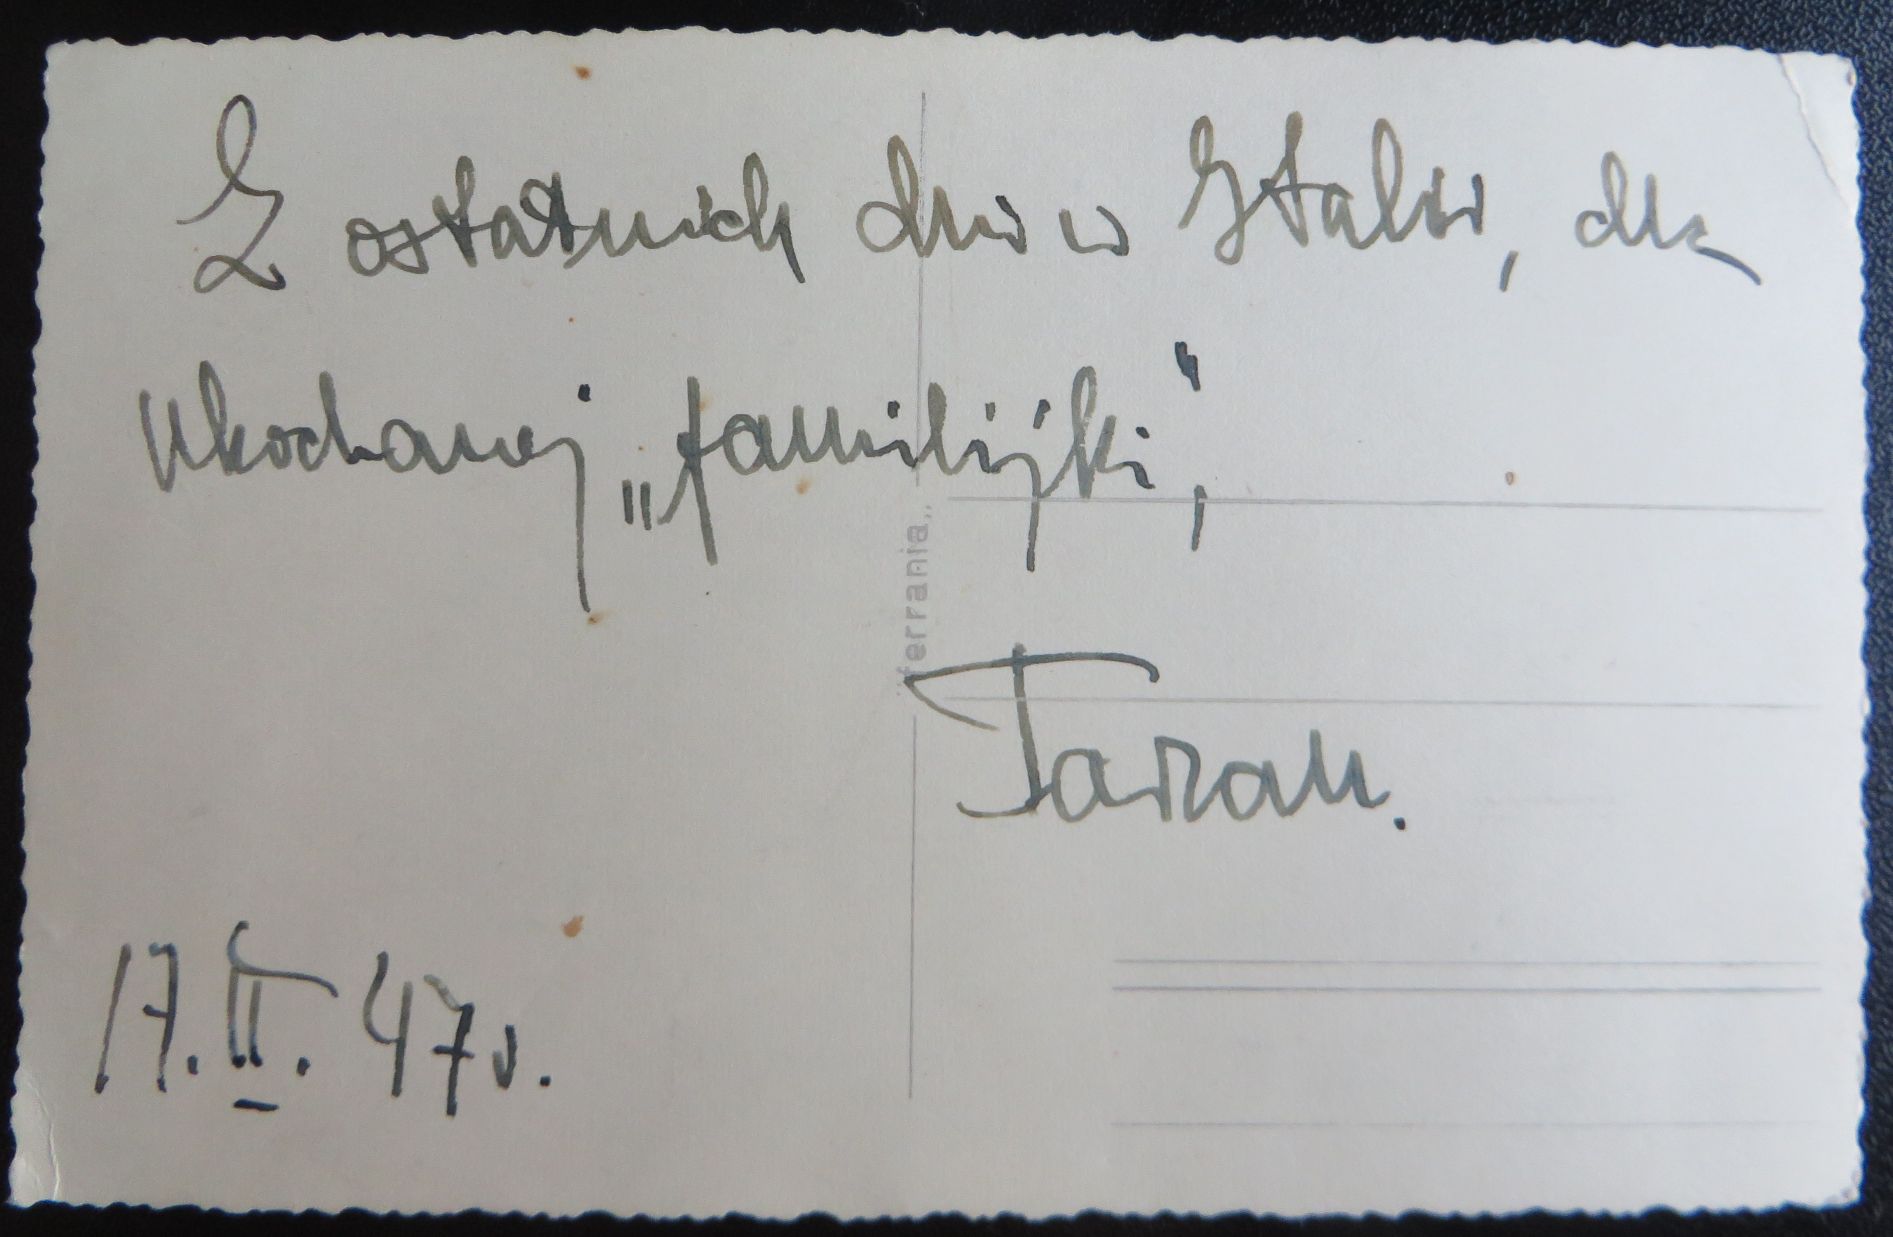 Z ostatnich dni w Italii, dla
Ukochanej „familijki”,
"ferrania"
Tarzan.
17.II. 47r.